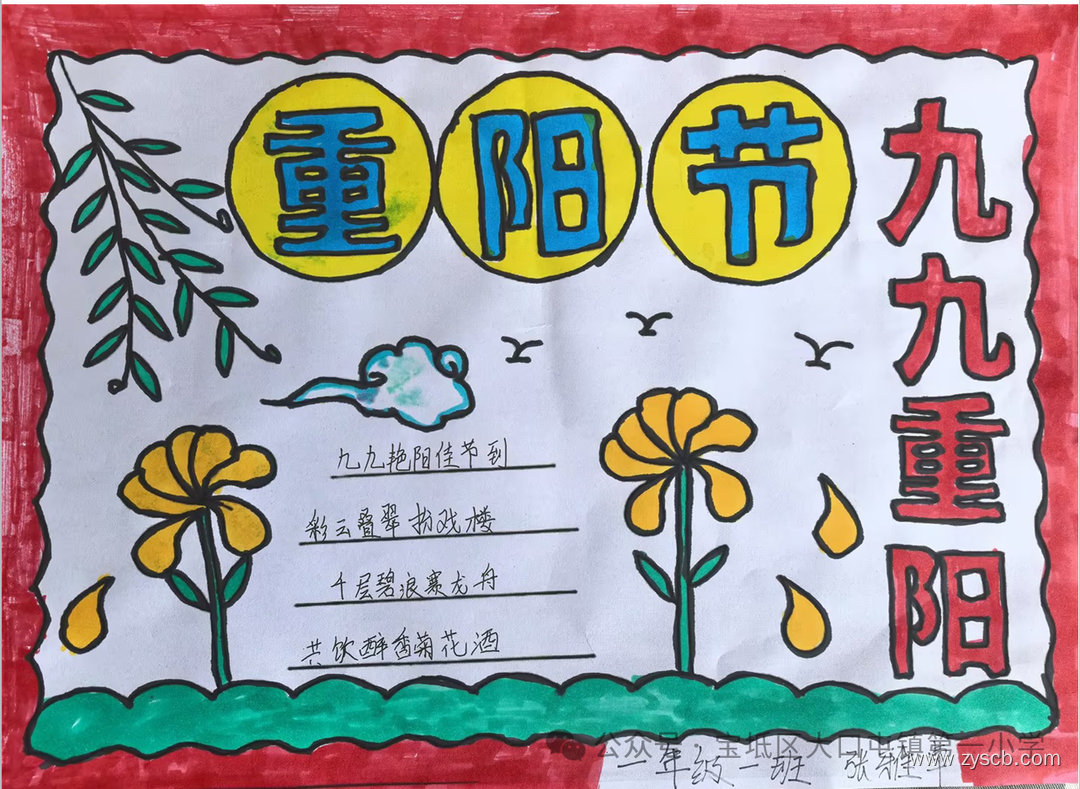 重阳节
九九重阳
九九艳阳佳节到
彩云叠翠扮戏楼
千层碧浪赛龙舟
共饮醉香菊花酒
公众号：宝坻区大口屯镇第一小学
一年级一班 张
www.zyscb.com